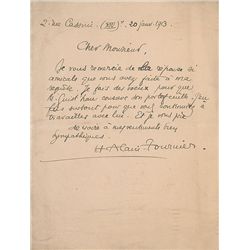 2, rue Cassini. (XIVe). 20 janv. 1913.
Cher Monsieur,
Je vous remercie de la réponse si
amicale que vous avez faite à ma
requête. Je fais des vœux pour que
conserve son portefeuille. J'en
fais surtout pour que vous continuiez à
travailler avec lui. Et je vous prie
de croire à mes sentiments très
sympathiques.
H. Alain-Fournier